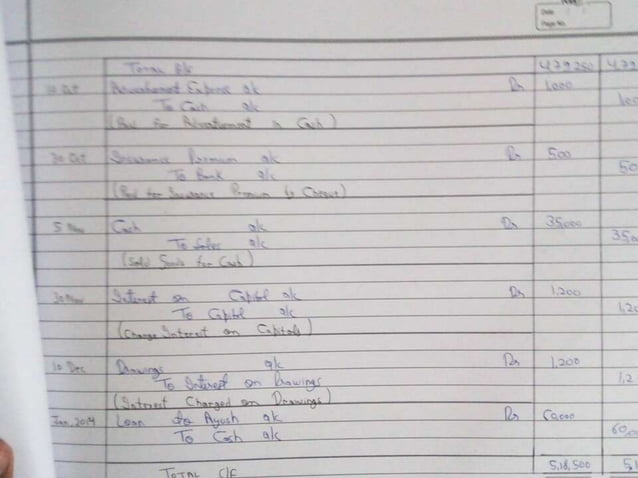 Date
Page No.
Total B/f 4,29,250 4,29
10 Oct Advertisement Expense a/c Dr 1,000
To Cash a/c 1,00
(Paid for Advertisement in Cash)
30 Oct Insurance Premium a/c Dr 500
To Bank a/c 50
(Paid for Insurance Premium by Cheque)
5 Nov Cash a/c Dr 35,000
To Sales a/c 35,0
(Sold Goods for Cash)
30 Nov Interest on Capital a/c Dr 1,200
To Capital a/c 1,20
(Charge Interest on Capitals)
10 Dec Drawings a/c Dr 1,200
To Interest on Drawings 1,2
(Interest Charged on Drawings)
Jan, 2014 Loan Ayush a/c Dr 60,000
To Cash a/c 60,0
TOTAL C/F 5,18,500 5,1